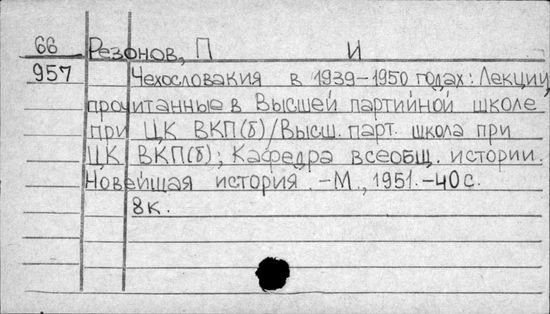 66 Резонов, П И
957 Чехословакия в 1939-1950 годах: Лекции,
прочитанные в Высшей партийной школе
при ЦК ВКП(б)/Высш. парт. школа при
ЦК ВКП(б); Кафедра всеобщ. истории.
Новейшая история. -М., 1951.-40с.
8к.